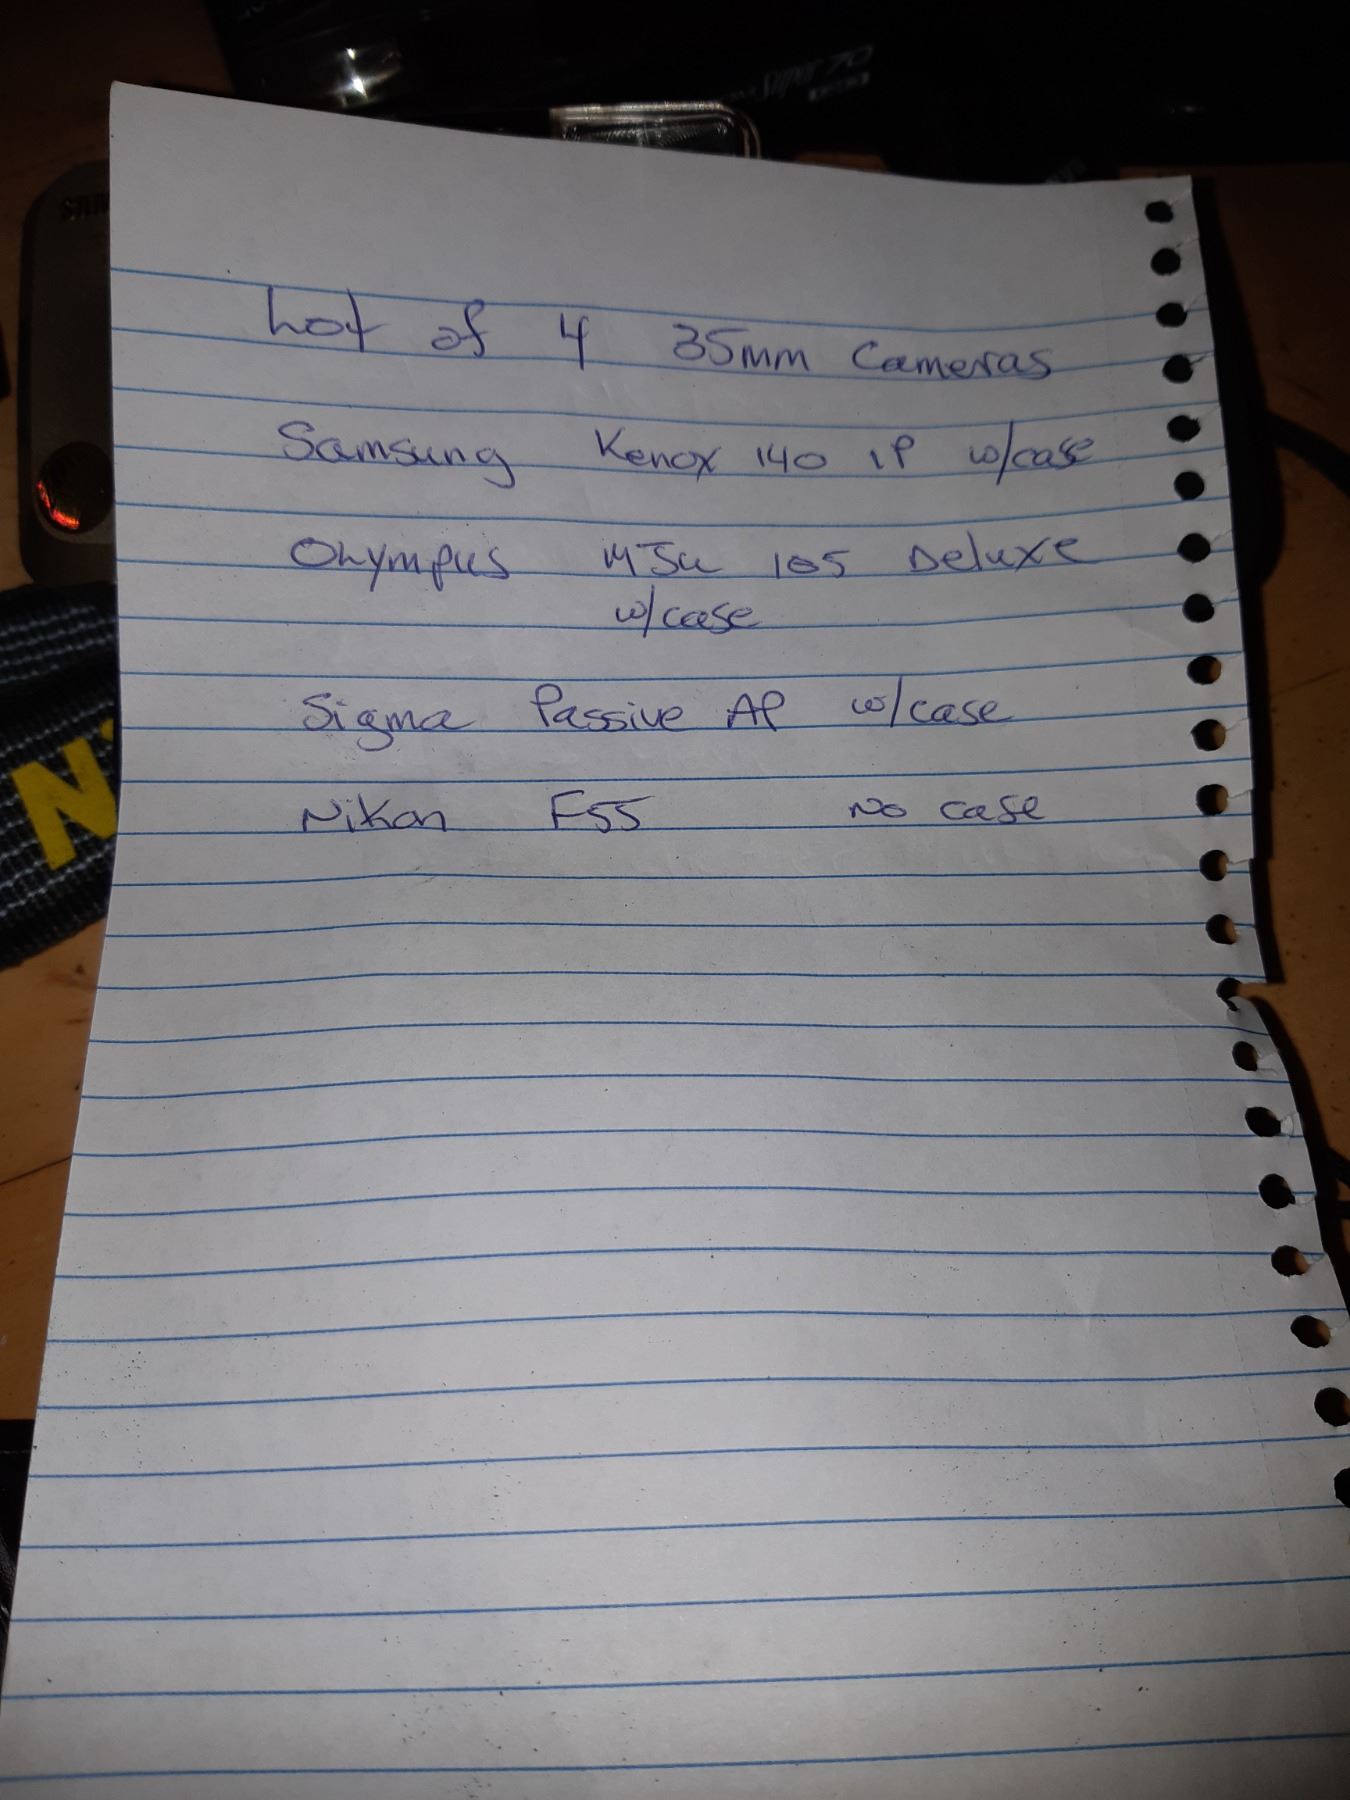 SAM
Lot of 4 35mm Cameras
Samsung Kenox 140 iP w/case
Olympus MJu 105 Deluxe
w/case
Sigma Passive AP w/case
Nikon F55 No case
N